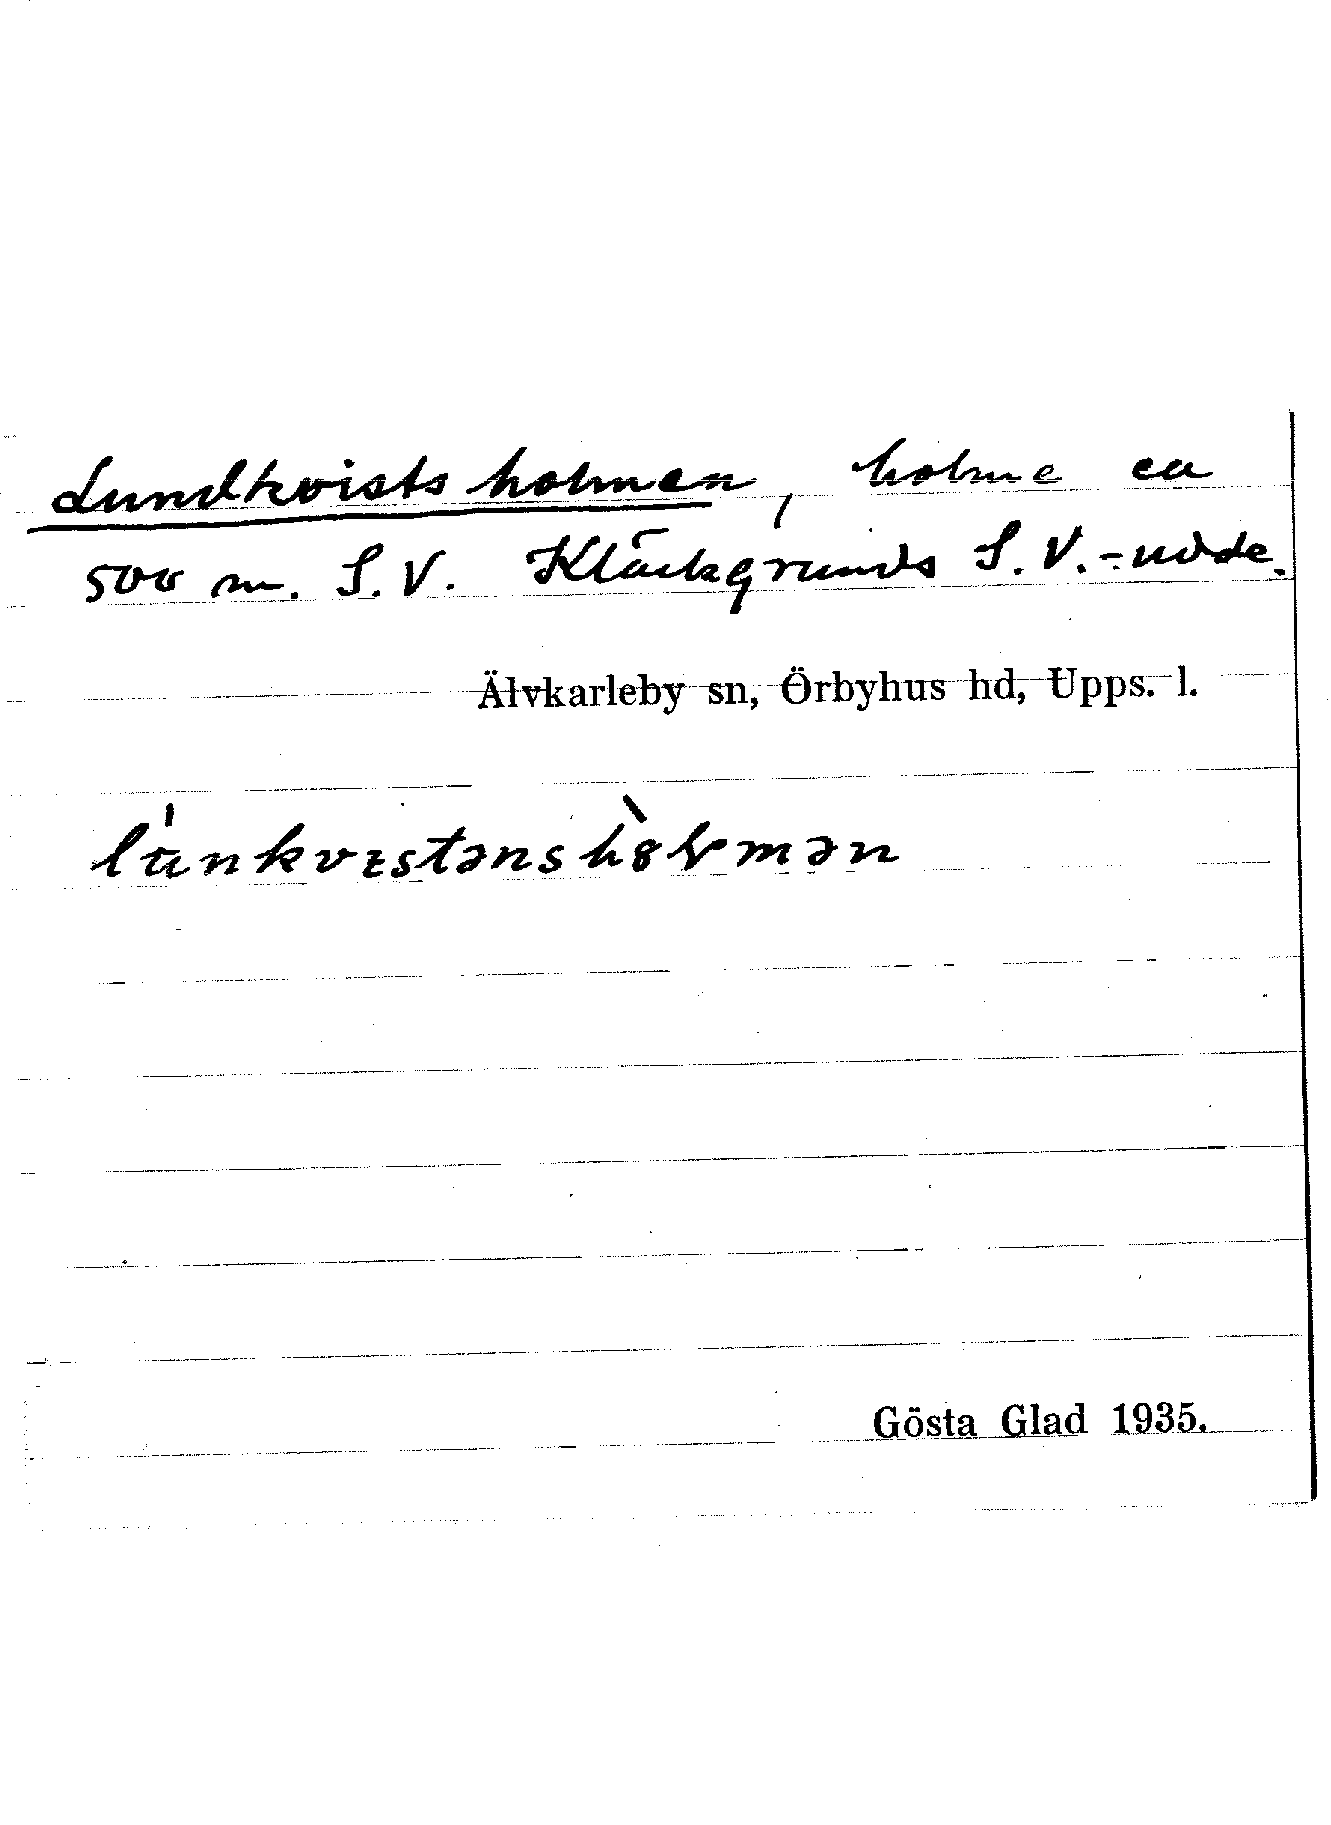 Lundkvistsholmen, holme ca
500 m. S.V. Kläckgrunds S.V.-udde.
Älvkarleby sn, Örbyhus hd, Upps. l.
Gösta Glad 1935.